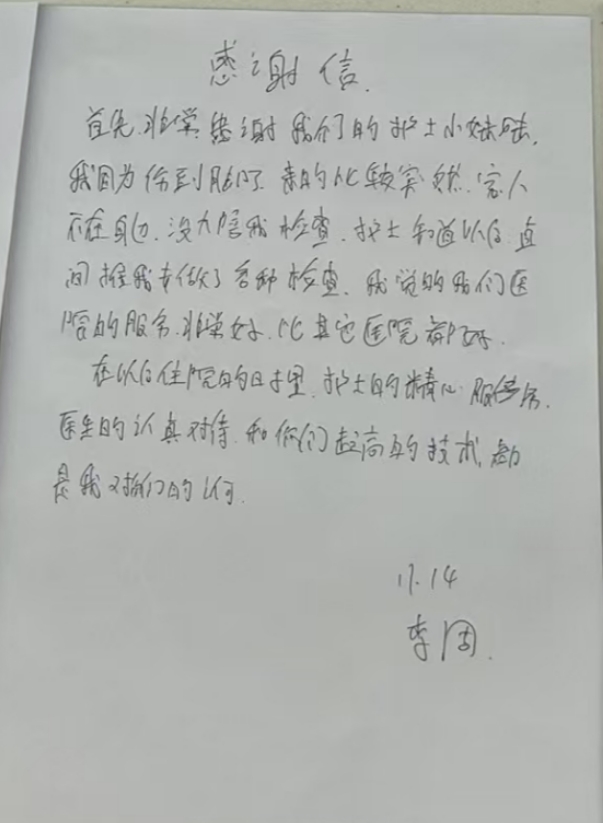 感谢信.
首先.非常感谢我们的护士小妹陆,
我因为伤到脚了.来的比较突然.家人
不在身边.没人陪我检查.护士知道以后.直
间推我去做了各种检查.我觉的我们医
院的服务.非常好.比其它医院都好.
在以后住院的日子里.护士的精心服务.
医生的认真对待.和你们超高的技术.都
是我对们的
11.14
李周.